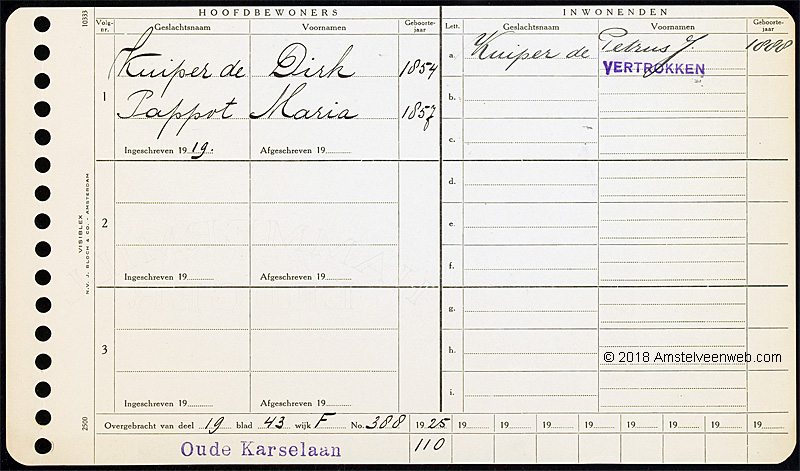 HOOFDBEWONERS
INWONENDEN
Volg-nr. Geslachtsnaam Voornamen Geboorte-jaar
Lett. Geslachtsnaam Voornamen Geboorte-jaar
1
Kuiper de Dirk 1854
Pappot Maria 1857
Ingeschreven 19 19. Afgeschreven 19
a. Kuiper de Petrus J. 1888
VERTROKKEN
b.
c.
2
Ingeschreven 19 Afgeschreven 19
d.
e.
f.
3
Ingeschreven 19 Afgeschreven 19
g.
h.
i.
Overgebracht van deel 19 blad 43 wijk F No. 388 1925 19 19 19 19 19 19 19 19
Oude Karselaan 110
10333
VISIBLEX
N.V. J. BLOCH & CO. - AMSTERDAM
2500
© 2018 Amstelveenweb.com